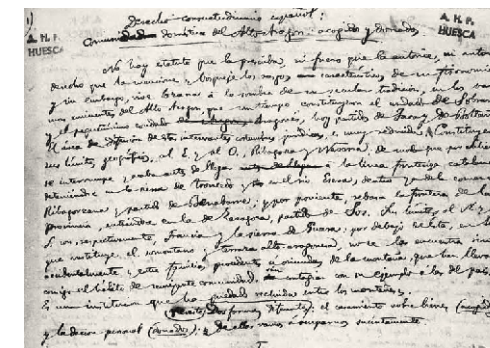 A. H. P.
HUESCA
A. H. P.
HUESCA
Derecho consuetudinario español:
Comunidad doméstica del Alto Aragón: acogidos y donados
No hay estatuto que la prescriba, ni fuero que la autorice, ni autor
derecho que la mencione y bosqueje los rasgos característicos de su fisonomía
y sin embargo, vive lozana a la sombra de su secular tradición, en los
del Alto Aragón, que un tiempo constituyeron el condado de Sobrarbe
y el condado Aragonés, hoy partidos de Jaca y de Boltaña
El área de difusión de esta interesante costumbre jurídica, es muy reducida. Constituyen
sus límites geográficos, al E. y al O., Ribagorza y Navarra, de modo que por
se interrumpe y acaba antes de llegar a la línea fronteriza catalana
deteniéndose en la sierra de y en el río Esera, dentro ya del
Ribagorzano y partido de Benabarre; y por poniente, rebasa la frontera de la
provincia, entrando en la de Zaragoza, partido de Sos. Su límite al N. y
S. son, respectivamente, Francia y la sierra de Guara: por debajo de esta, en
que constituye el somontano y tierra alto-aragonesa, no se la encuentra sino
accidentalmente, entre familias procedentes de la montaña, que han llevado
consigo el hábito de semejante comunidad, sin contagiar con su ejemplo a las del país.
Es una institución que ha quedado recluida entre los montes.
Reviste dos formas distintas: el casamiento sobre bienes (acogidos)
y la adopción personal (donados): de ellos vamos a ocuparnos sucintamente.